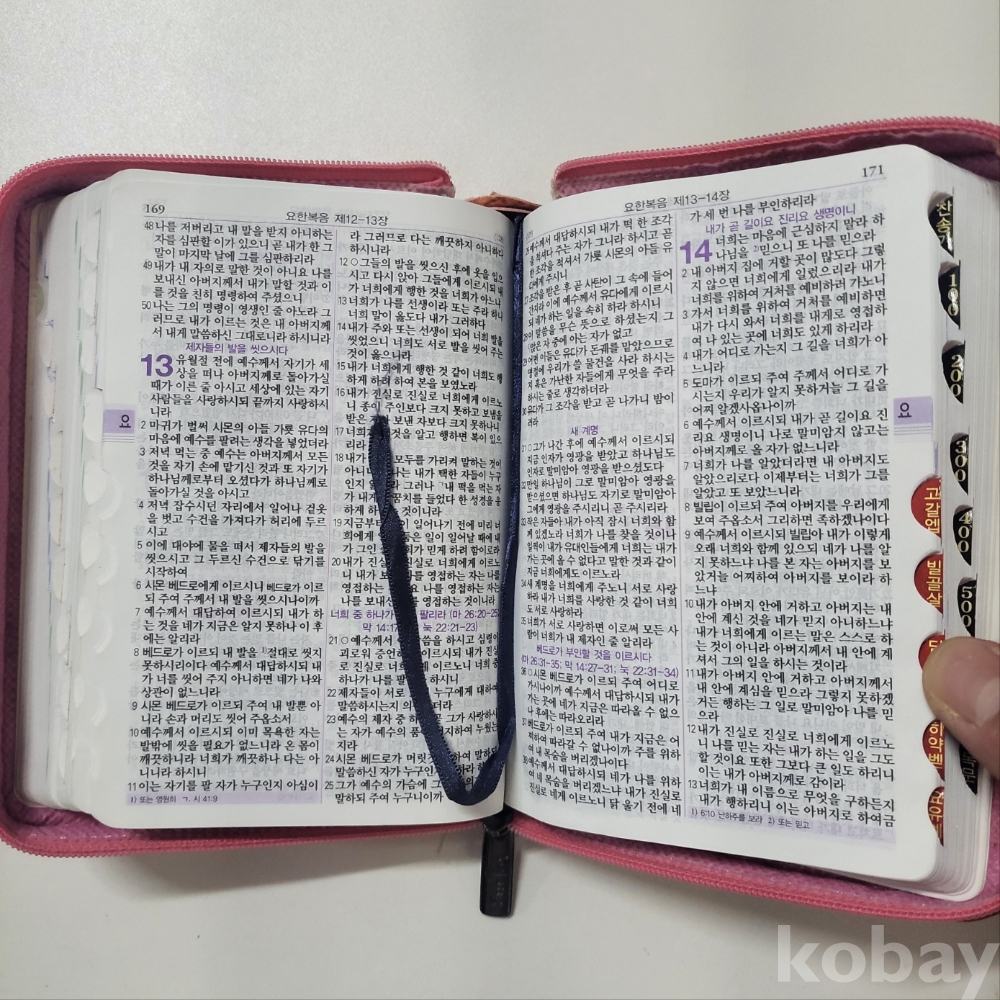 169
요한복음 제12-13장
48 나를 저버리고 내 말을 받지 아니하는
자를 심판할 이가 있으니 곧 내가 한 그
말이 마지막 날에 그를 심판하리라
49 내가 내 자의로 말한 것이 아니요 나를
보내신 아버지께서 내가 말할 것과 이
를 것을 친히 명령하여 주셨으니
50 나는 그의 명령이 영생인 줄 아노라 그
러므로 내가 이르는 것은 내 아버지께
서 내게 말씀하신 그대로니라 하시니라
제자들의 발을 씻으시다
13 유월절 전에 예수께서 자기가 세
상을 떠나 아버지께로 돌아가실
때가 이른 줄 아시고 세상에 있는 자기
사람들을 사랑하시되 끝까지 사랑하시
니라
2 마귀가 벌써 시몬의 아들 가룟 유다의
마음에 예수를 팔려는 생각을 넣었더라
3 저녁 먹는 중 예수는 아버지께서 모든
것을 자기 손에 맡기신 것과 또 자기가
하나님께로부터 오셨다가 하나님께로
돌아가실 것을 아시고
4 저녁 잡수시던 자리에서 일어나 겉옷
을 벗고 수건을 가져다가 허리에 두르
시고
5 이에 대야에 물을 떠서 제자들의 발을
씻으시고 그 두르신 수건으로 닦기를
시작하여
6 시몬 베드로에게 이르시니 베드로가 이르
되 주여 주께서 내 발을 씻으시나이까
7 예수께서 대답하여 이르시되 내가 하
는 것을 네가 지금은 알지 못하나 이 후
에는 알리라
8 베드로가 이르되 내 발을 절대로 씻지
못하시리이다 예수께서 대답하시되 내
가 너를 씻어 주지 아니하면 네가 나와
상관이 없느니라
9 시몬 베드로가 이르되 주여 내 발뿐 아
니라 손과 머리도 씻어 주옵소서
10 예수께서 이르시되 이미 목욕한 자는
발밖에 씻을 필요가 없느니라 온 몸이
깨끗하니라 너희가 깨끗하나 다는 아
니니라 하시니
11 이는 자기를 팔 자가 누구인지 아심이
1) 또는 영원히 ㄱ. 시 41:9
라 그러므로 다는 깨끗하지 아니하다
하시니라
12 ○그들의 발을 씻으신 후에 옷을 입으
시고 다시 앉아 그들에게 이르시되 내
가 너희에게 행한 것을 너희가 아느냐
13 너희가 나를 선생이라 또는 주라 하니
너희 말이 옳도다 내가 그러하다
14 내가 주와 또는 선생이 되어 너희 발을
씻었으니 너희도 서로 발을 씻어 주는
것이 옳으니라
15 내가 너희에게 행한 것 같이 너희도 행
하게 하려 하여 본을 보였노라
16 내가 진실로 진실로 너희에게 이르노
니 종이 주인보다 크지 못하고 보냄을
받은 보낸 자보다 크지 못하나니
17 너희가 것을 알고 행하면 복이 있으
리라
18 내가 모두를 가리켜 말하는 것이
아니니라 나는 내가 택한 자들이 누구
인지 그러나 내 떡을 먹는 자
가 내게 꿈치를 들었다 한 성경을
하게
19 지금부 일이 일어나기 전에 미리 너
희에게 은 일이 일어날 때에 내
가 그인 희가 믿게 하려 함이로라
20 내가 진실로 진실로 너희에게 이르노
니 내가 보 를 영접하는 자는 나를
영접하는 것이요 나를 영접하는 자는
나를 보내신 를 영접하는 것이니라
너희 중 하나가 팔리라 (마 26:20-25;
막 14:17 눅 22:21-23)
21 ○예수께서 씀을 하시고 심령이
괴로워 증언하 이르시되 내가 진실
로 진실로 너희에게 이르노니 너희 중
22 제자들이 서로 누구에게 대하여
말씀하시는지 의
23 예수의 제자 중 하 곧 그가 사랑하시
는 자가 예수의 품 지하여 누웠는
지라
24 시몬 베드로가 머릿 하여 말하되
말씀하신 자가 누구인 하라 하니
25 그가 예수의 가슴에 그 의지하여
말하되 주여 누구니이까
171
요한복음 제13-14장
예수께서 대답하시되 내가 떡 한 조각
을 적셔다 주는 자가 그니라 하시고 곧
한 조각을 적셔서 가룟 시몬의 아들 유
다에게 주시니
27 조각을 받은 후 곧 사탄이 그 속에 들어
간지라 이에 예수께서 유다에게 이르시
되 네가 하는 일을 속히 하라 하시니
이 말씀을 무슨 뜻으로 하셨는지 그
앉은 자 중에 아는 자가 없고
어떤 이들은 유다가 돈궤를 맡았으므로
명절에 우리가 쓸 물건을 사라 하시는
지 혹은 가난한 자들에게 무엇을 주라
하시는 줄로 생각하더라
유다가 그 조각을 받고 곧 나가니 밤이
러라
새 계명
○그가 나간 후에 예수께서 이르시되
지금 인자가 영광을 받았고 하나님도
인자로 말미암아 영광을 받으셨도다
만일 하나님이 그로 말미암아 영광을
받으셨으면 하나님도 자기로 말미암아
그에게 영광을 주시리니 곧 주시리라
작은 자들아 내가 아직 잠시 너희와 함
께 있겠노라 너희가 나를 찾을 것이나
일찍이 내가 유대인들에게 너희는 내가
가는 곳에 올 수 없다고 말한 것과 같이
지금 너희에게도 이르노라
새 계명을 너희에게 주노니 서로 사랑
하라 내가 너희를 사랑한 것 같이 너희
도 서로 사랑하라
35 너희가 서로 사랑하면 이로써 모든 사
람이 너희가 내 제자인 줄 알리라
베드로가 부인할 것을 이르시다
(마 26:31-35; 막 14:27-31; 눅 22:31-34)
36 ○시몬 베드로가 이르되 주여 어디로
가시나이까 예수께서 대답하시되 내가
가는 곳에 네가 지금은 따라올 수 없으
나 후에는 따라오리라
37 베드로가 이르되 주여 내가 지금은 어
찌하여 따라갈 수 없나이까 주를 위하
여 내 목숨을 버리겠나이다
예수께서 대답하시되 네가 나를 위하
여 네 목숨을 버리겠느냐 내가 진실로
진실로 네게 이르노니 닭 울기 전에 네
가 세 번 나를 부인하리라
내가 곧 길이요 진리요 생명이니
14 너희는 마음에 근심하지 말라 하
나님을 믿으니 또 나를 믿으라
2 내 아버지 집에 거할 곳이 많도다 그렇
지 않으면 너희에게 일렀으리라 내가
너희를 위하여 거처를 예비하러 가노니
3 가서 너희를 위하여 거처를 예비하면
내가 다시 와서 너희를 내게로 영접하
여 나 있는 곳에 너희도 있게 하리라
4 내가 어디로 가는지 그 길을 너희가 아
느니라
5 도마가 이르되 주여 주께서 어디로 가
시는지 우리가 알지 못하거늘 그 길을
어찌 알겠사옵나이까
6 예수께서 이르시되 내가 곧 길이요 진
리요 생명이니 나로 말미암지 않고는
아버지께로 올 자가 없느니라
7 너희가 나를 알았더라면 내 아버지도
알았으리로다 이제부터는 너희가 그를
알았고 또 보았느니라
8 빌립이 이르되 주여 아버지를 우리에게
보여 주옵소서 그리하면 족하겠나이다
9 예수께서 이르시되 빌립아 내가 이렇게
오래 너희와 함께 있으되 네가 나를 알
지 못하느냐 나를 본 자는 아버지를 보
았거늘 어찌하여 아버지를 보이라 하
느냐
10 내가 아버지 안에 거하고 아버지는 내
안에 계신 것을 네가 믿지 아니하느냐
내가 너희에게 이르는 말은 스스로 하
는 것이 아니라 아버지께서 내 안에 계
셔서 그의 일을 하시는 것이라
11 내가 아버지 안에 거하고 아버지께서
내 안에 계심을 믿으라 그렇지 못하겠
거든 행하는 그 일로 말미암아 나를 믿
으라
12 내가 진실로 진실로 너희에게 이르노
니 나를 믿는 자는 내가 하는 일을 그도
할 것이요 또한 그보다 큰 일도 하리니
이는 내가 아버지께로 감이라
13 너희가 내 이름으로 무엇을 구하든지
내가 행하리니 이는 아버지로 하여금
1) 6:10 난하주를 보라 2) 또는 믿고
요
요
찬송가
100
200
300
400
500
고갈엡
빌골살
히약벧
요유계
kobay